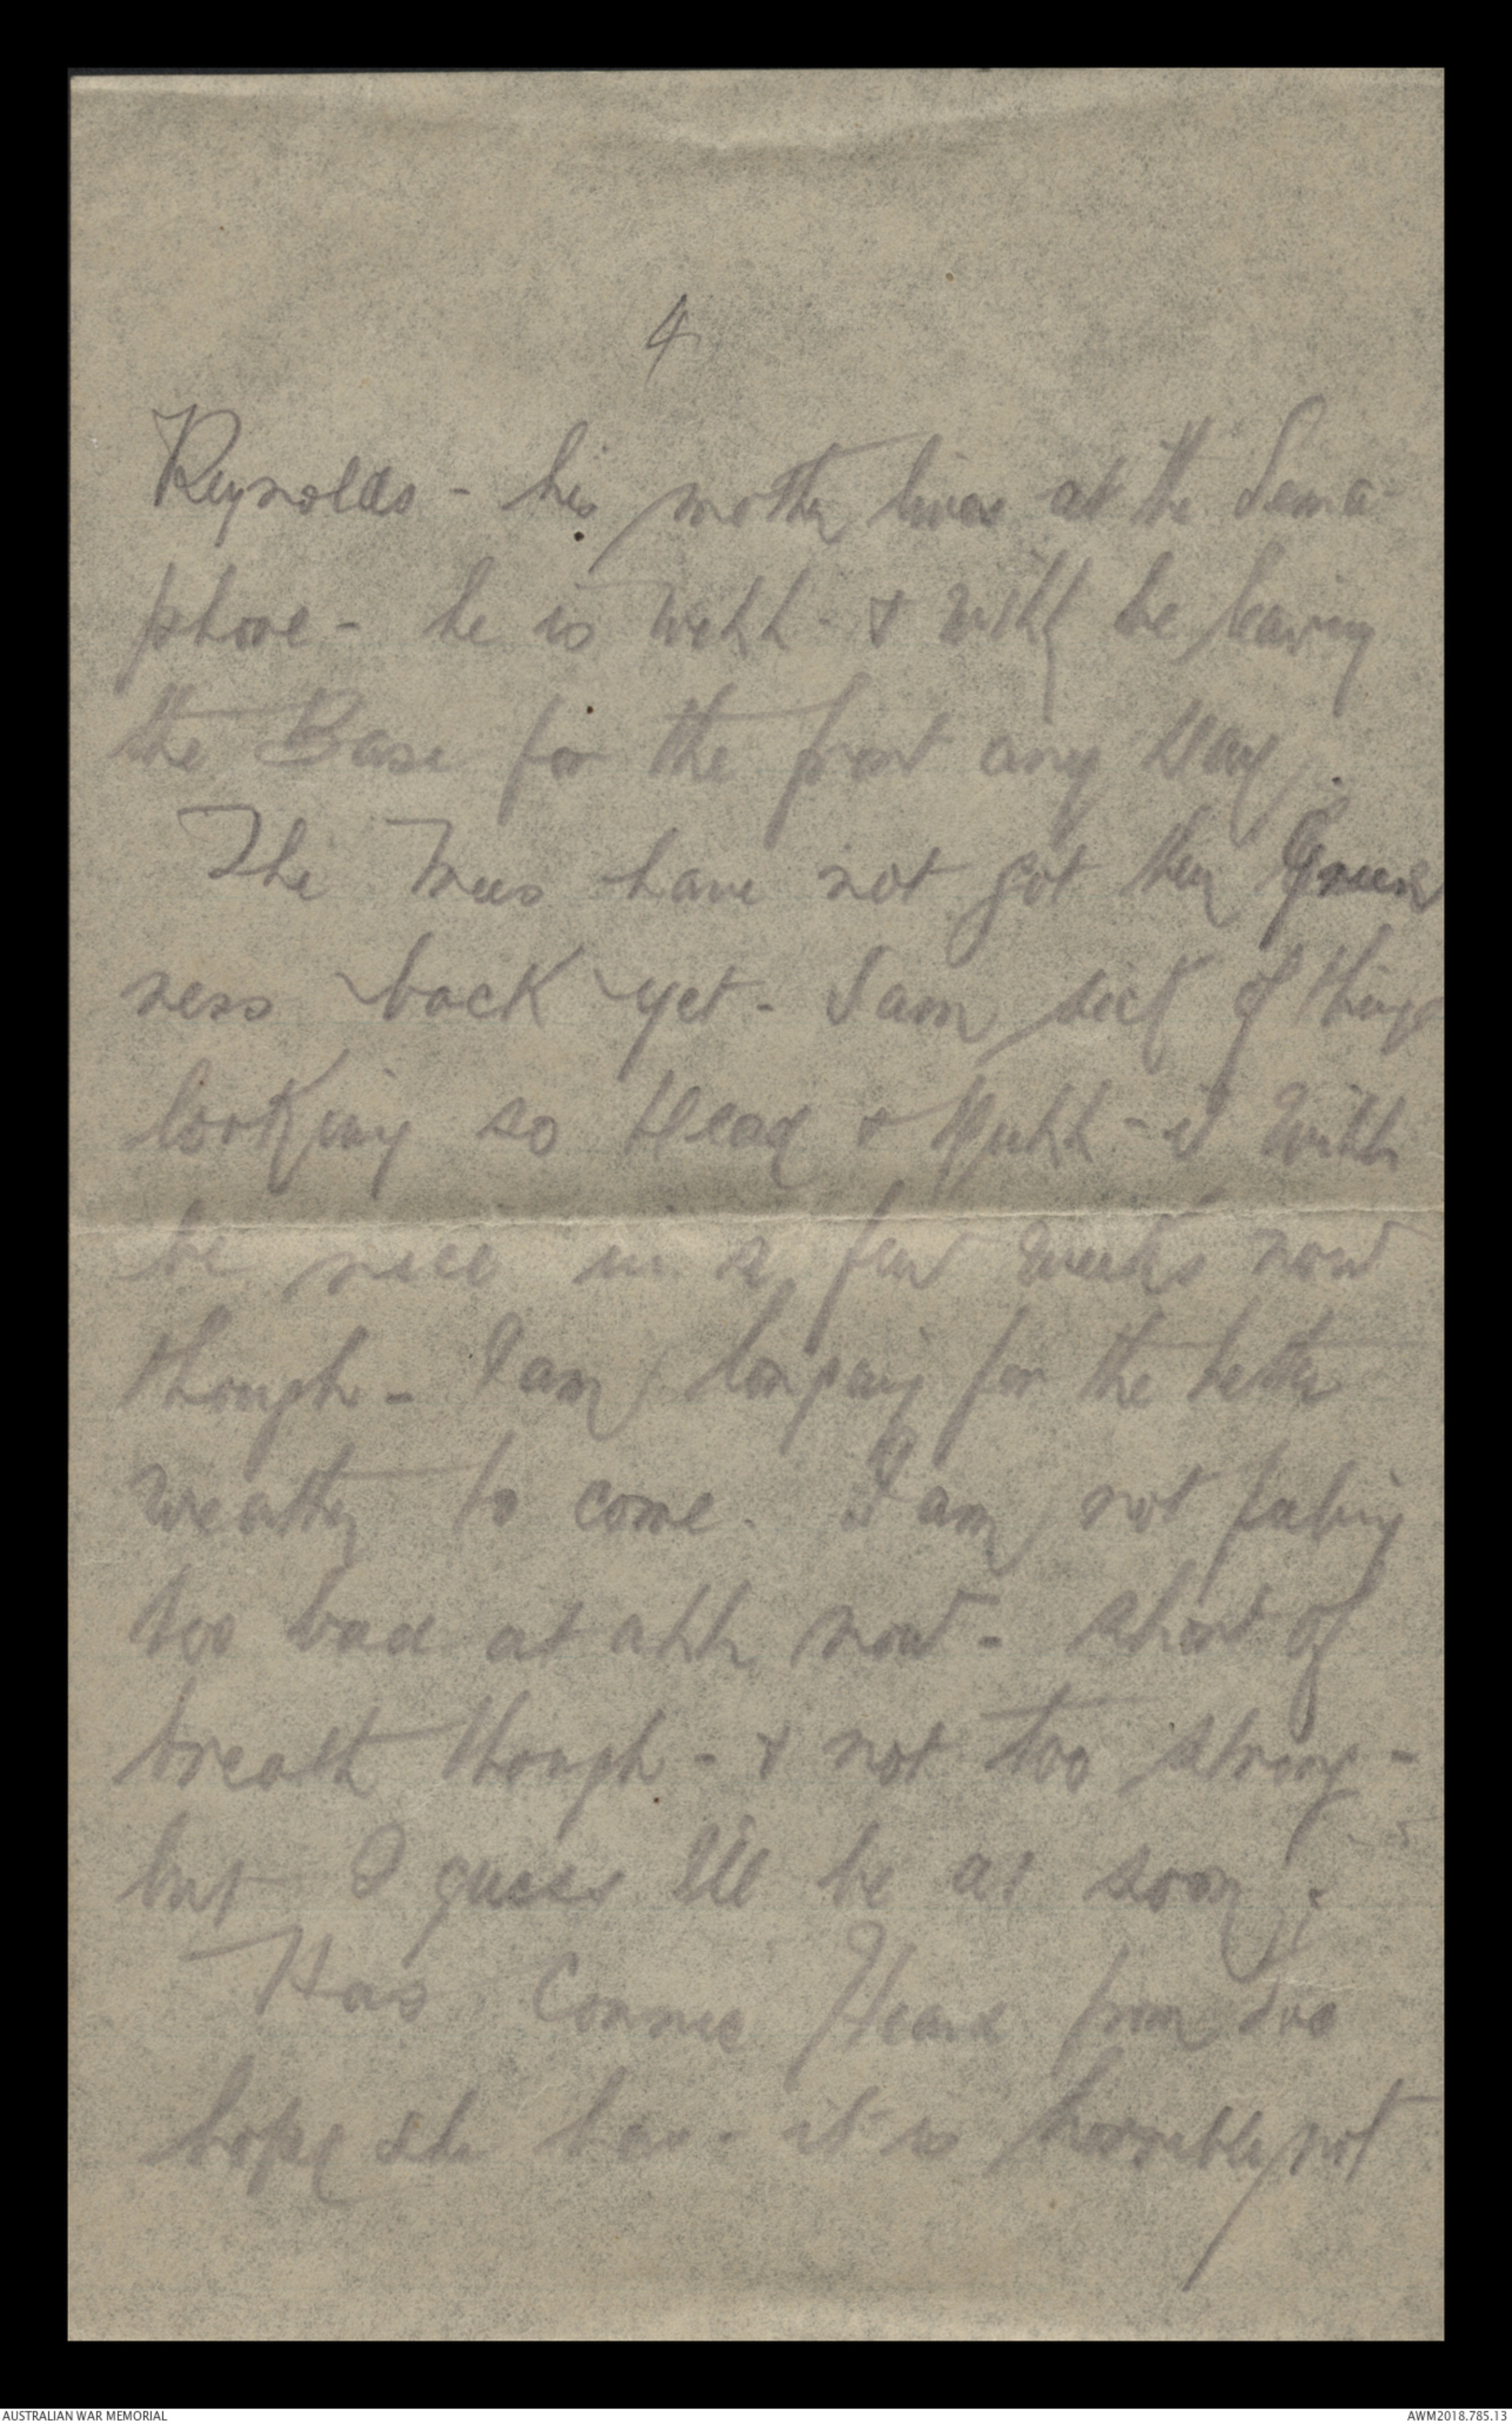 4
Reynolds - his mother lives at the Sema-
phore - he is well - & will be leaving
the Base for the front any day.
The Trees have not got their Green
ness back yet - I am sick of things
looking so dead & dull - it will
be nice in a few weeks now
though - I am longing for the better
weather to come. I am not
too bad at all now - short of
breath though - & not too strong -
but I guess I'll be at soon.
Has Connie Heard from
hope she has - it is horrible not
AUSTRALIAN WAR MEMORIAL
AWM2018.785.13